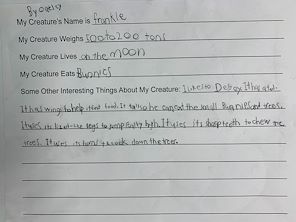 By
My Creature's Name is Frankie
My Creature Weighs 100 to 200 tons
My Creature Lives on the moon
My Creature Eats Bunnies
Some Other Interesting Things About My Creature: I like to
It has wings to help it find food. It tall so he can eat the small Bugs and trees.
It uses its like legs to jump Really high. It uses its sharp teeth to chew the
trees. It uses its hand to knock down the trees.